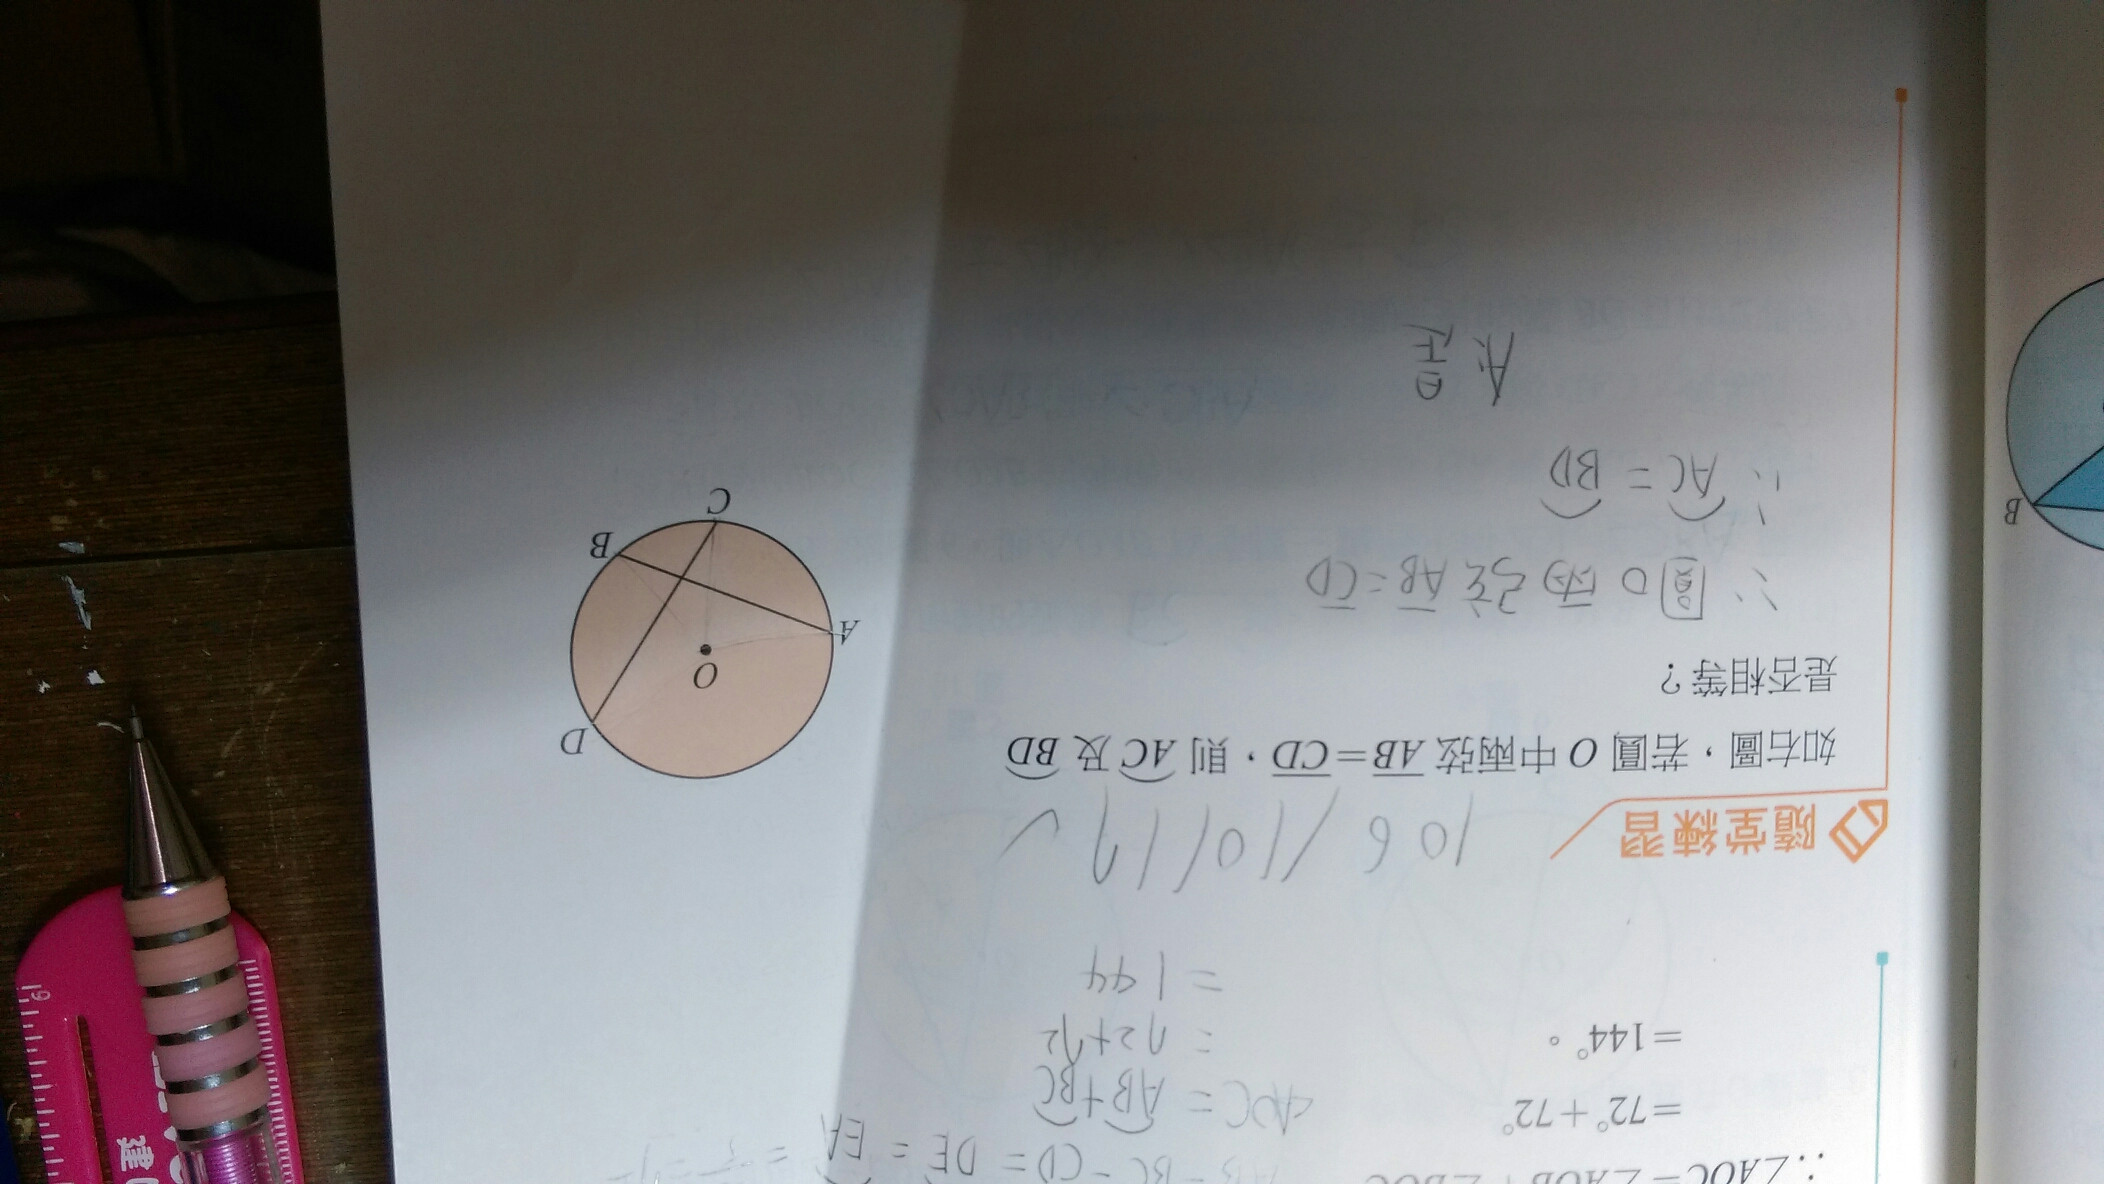 ∴∠AOC=∠AOB+∠BOC
=72°+72°
=144°。
BC = CD = DE = EA
∠AOC = AB+BC
= 72+72
= 144
隨堂練習
106/10/17
如右圖,若圓 O 中兩弦 AB=CD,則 AC 及 BD
是否相等?
∵ 圓O 兩弦 AB=CD
∴ AC = BD
A:是
O
A
B
C
D
B
6
建